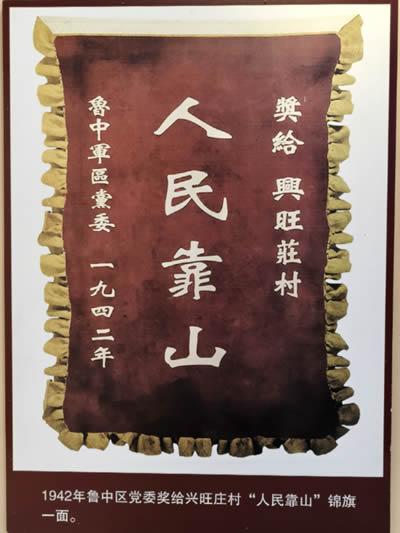 獎給 興旺莊村
人民靠山
魯中軍區黨委 一九四二年
1942年鲁中区党委奖给兴旺庄村“人民靠山”锦旗
一面。